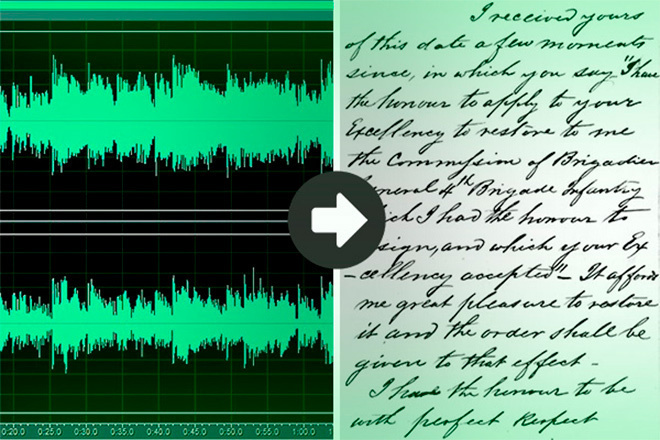 0:20.0 0:25.0 0:30.0 0:35.0 0:40.0 0:45.0 0:50.0 0:55.0 1:00.0
I received yours
of this date a few moments
since, in which you say "I have
the honour to apply to your
Excellency to restore to me
the Commission of Brigadier
General 4th Brigade Infantry
which I had the honour to
sign, and which your Ex
-cellency accepted" - It affords
me great pleasure to restore
it and the order shall be
given to that effect -
I have the honour to be
with perfect Respect